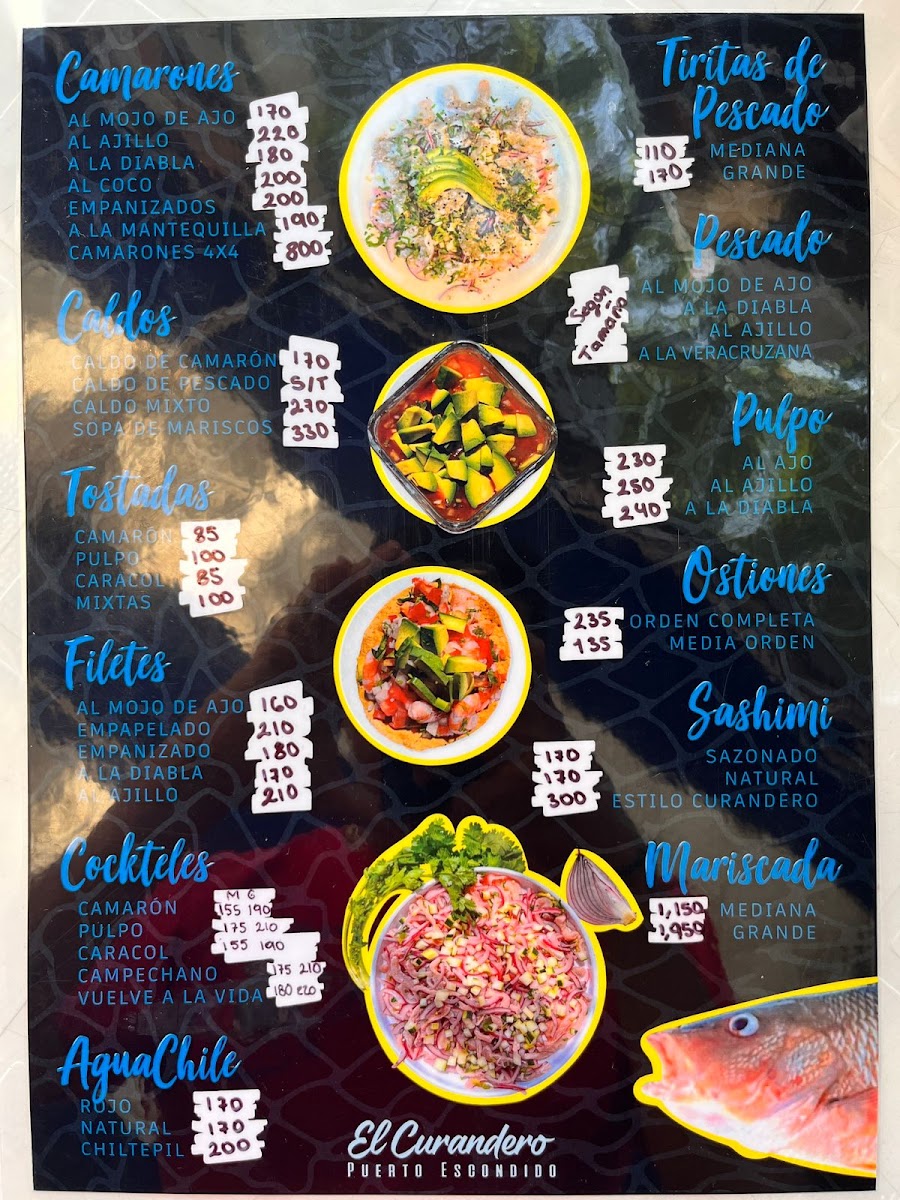 Camarones
AL MOJO DE AJO 170
AL AJILLO 220
A LA DIABLA 180
AL COCO 200
EMPANIZADOS 200
A LA MANTEQUILLA 190
CAMARONES 4X4 800
Caldos
CALDO DE CAMARÓN 170
CALDO DE PESCADO S/T
CALDO MIXTO 270
SOPA DE MARISCOS 330
Tostadas
CAMARÓN 85
PULPO 100
CARACOL 85
MIXTAS 100
Filetes
AL MOJO DE AJO 160
EMPAPELADO 210
EMPANIZADO 180
A LA DIABLA 170
AL AJILLO 210
Cockteles
M G
CAMARÓN 155 190
PULPO 175 210
CARACOL 155 190
CAMPECHANO 175 210
VUELVE A LA VIDA 180 220
AguaChile
ROJO 170
NATURAL 170
CHILTEPIL 200
Tiritas de
Pescado
110 MEDIANA
170 GRANDE
Pescado
Según
Tamaño
AL MOJO DE AJO
A LA DIABLA
AL AJILLO
A LA VERACRUZANA
Pulpo
230 AL AJO
250 AL AJILLO
240 A LA DIABLA
Ostiones
235 ORDEN COMPLETA
135 MEDIA ORDEN
Sashimi
170 SAZONADO
170 NATURAL
300 ESTILO CURANDERO
Mariscada
1,150 MEDIANA
1,950 GRANDE
El Curandero
PUERTO ESCONDIDO